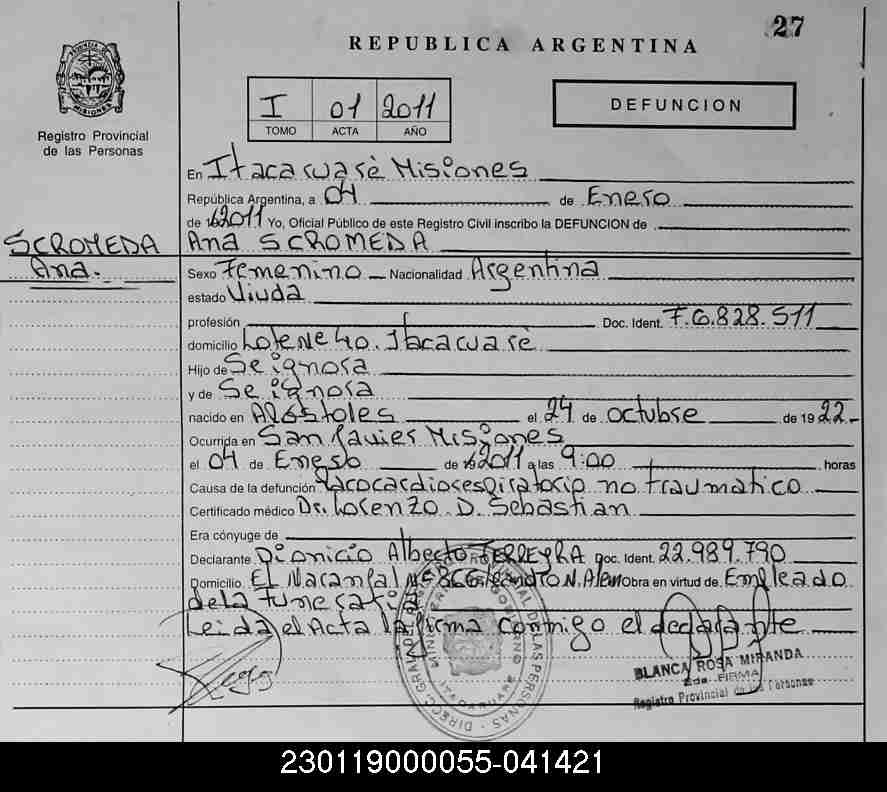 27
REPUBLICA ARGENTINA
PROVINCIA DE MISIONES
Registro Provincial
de las Personas
I 01 2011
TOMO ACTA AÑO
DEFUNCION
En Itacaruarè Misiones
República Argentina, a 04 de Enero
de 2011 Yo, Oficial Público de este Registro Civil inscribo la DEFUNCION de
SCROMEDA
Ana.
Ana SCROMEDA
Sexo Femenino Nacionalidad Argentina
estado Viuda
profesión Doc. Ident. F.6.828.511
domicilio Lote Nº 40. Itacaruarè
Hijo de Se ignora
y de Se ignora
nacido en Apóstoles el 24 de octubre de 1922.-
Ocurrida en San Javier Misiones
el 04 de Enero de 2011 a las 9:00 horas
Causa de la defunción Parocardiorespiratorio no traumático
Certificado médico Dr. Lorenzo D. Sebastian
Era cónyuge de
Declarante Dionicio Alberto FERREYRA Doc. Ident. 22.989.790
Domicilio El Naranjal Nº 866 Leandro N. Alem Obra en virtud de Empleado
de la Funeraria
Leida el Acta la firma conmigo el declarante
BLANCA ROSA MIRANDA
2da. FIRMA
Registro Provincial de las Personas
230119000055-041421